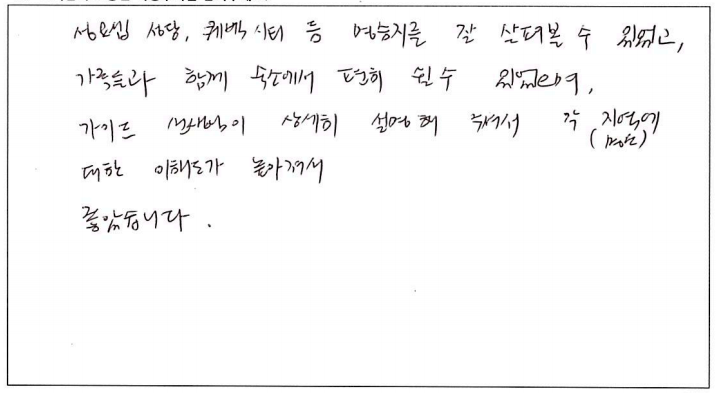 성요셉 성당, 퀘벡시티 등 명승지를 잘 살펴볼 수 있었고,
가족들과 함께 숙소에서 편히 쉴 수 있었으며,
가이드 선생님이 상세히 설명해 주셔서 각 지역에
(명소)
대한 이해도가 높아져서
좋았습니다.